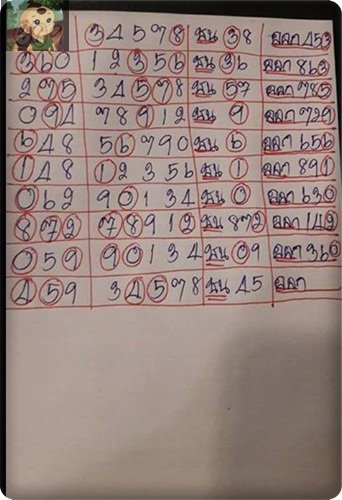 34578 ชน 38 ออก 453
360 12356 ชน 36 ออก 863
275 34578 ชน 57 ออก 785
094 78912 ชน 9 ออก 729
648 56790 ชน 6 ออก 656
148 12356 ชน 1 ออก 891
062 90134 ชน 0 ออก 630
872 78912 ชน 872 ออก 142
059 90134 ชน 09 ออก 360
459 34578 ชน 45 ออก